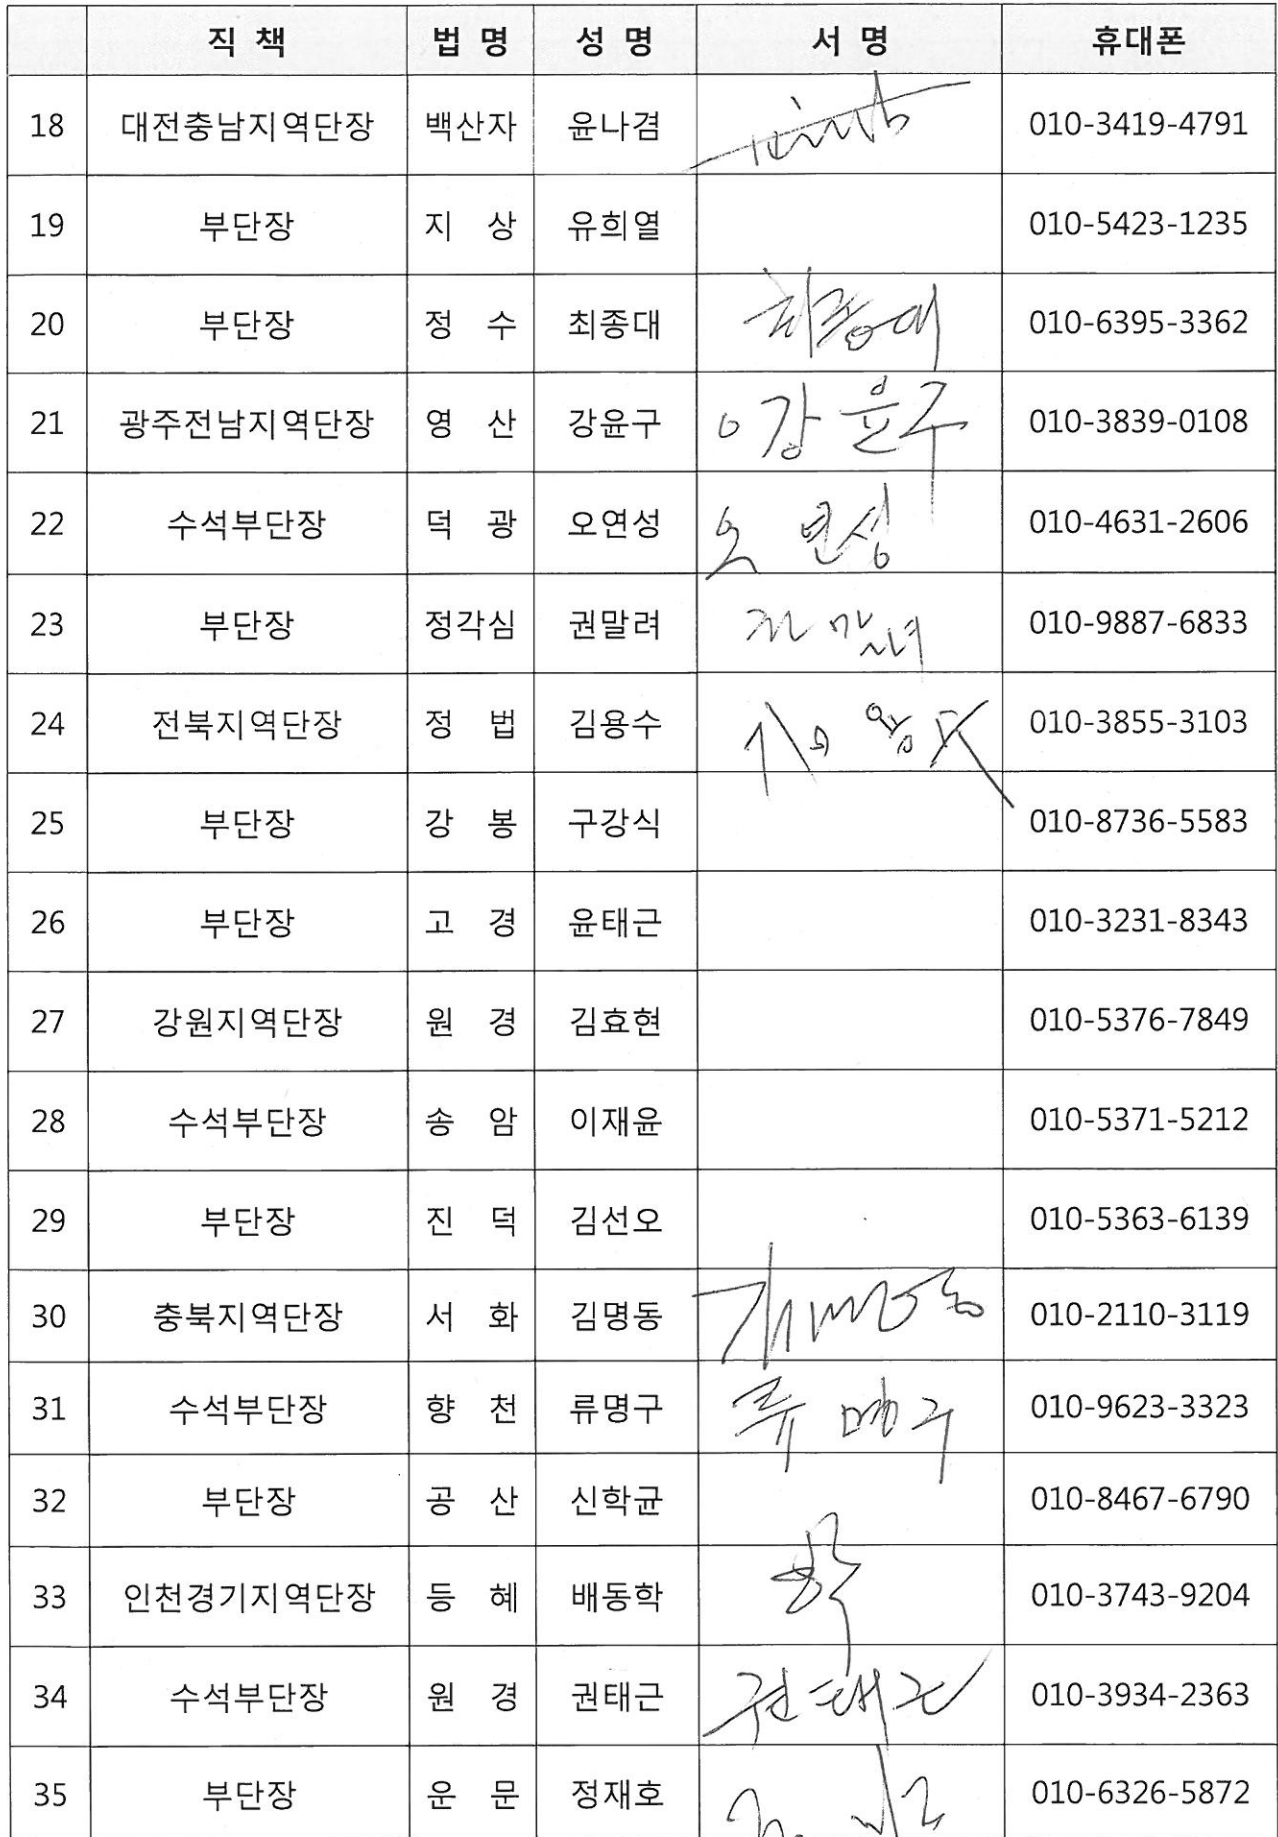 직 책 법 명 성 명 서 명 휴대폰
18 대전충남지역단장 백산자 윤나겸 010-3419-4791
19 부단장 지 상 유희열 010-5423-1235
20 부단장 정 수 최종대 최종대 010-6395-3362
21 광주전남지역단장 영 산 강윤구 강윤구 010-3839-0108
22 수석부단장 덕 광 오연성 오 연성 010-4631-2606
23 부단장 정각심 권말려 010-9887-6833
24 전북지역단장 정 법 김용수 010-3855-3103
25 부단장 강 봉 구강식 010-8736-5583
26 부단장 고 경 윤태근 010-3231-8343
27 강원지역단장 원 경 김효현 010-5376-7849
28 수석부단장 송 암 이재윤 010-5371-5212
29 부단장 진 덕 김선오 010-5363-6139
30 충북지역단장 서 화 김명동 010-2110-3119
31 수석부단장 향 천 류명구 류 명구 010-9623-3323
32 부단장 공 산 신학균 010-8467-6790
33 인천경기지역단장 등 혜 배동학 010-3743-9204
34 수석부단장 원 경 권태근 권태근 010-3934-2363
35 부단장 운 문 정재호 010-6326-5872